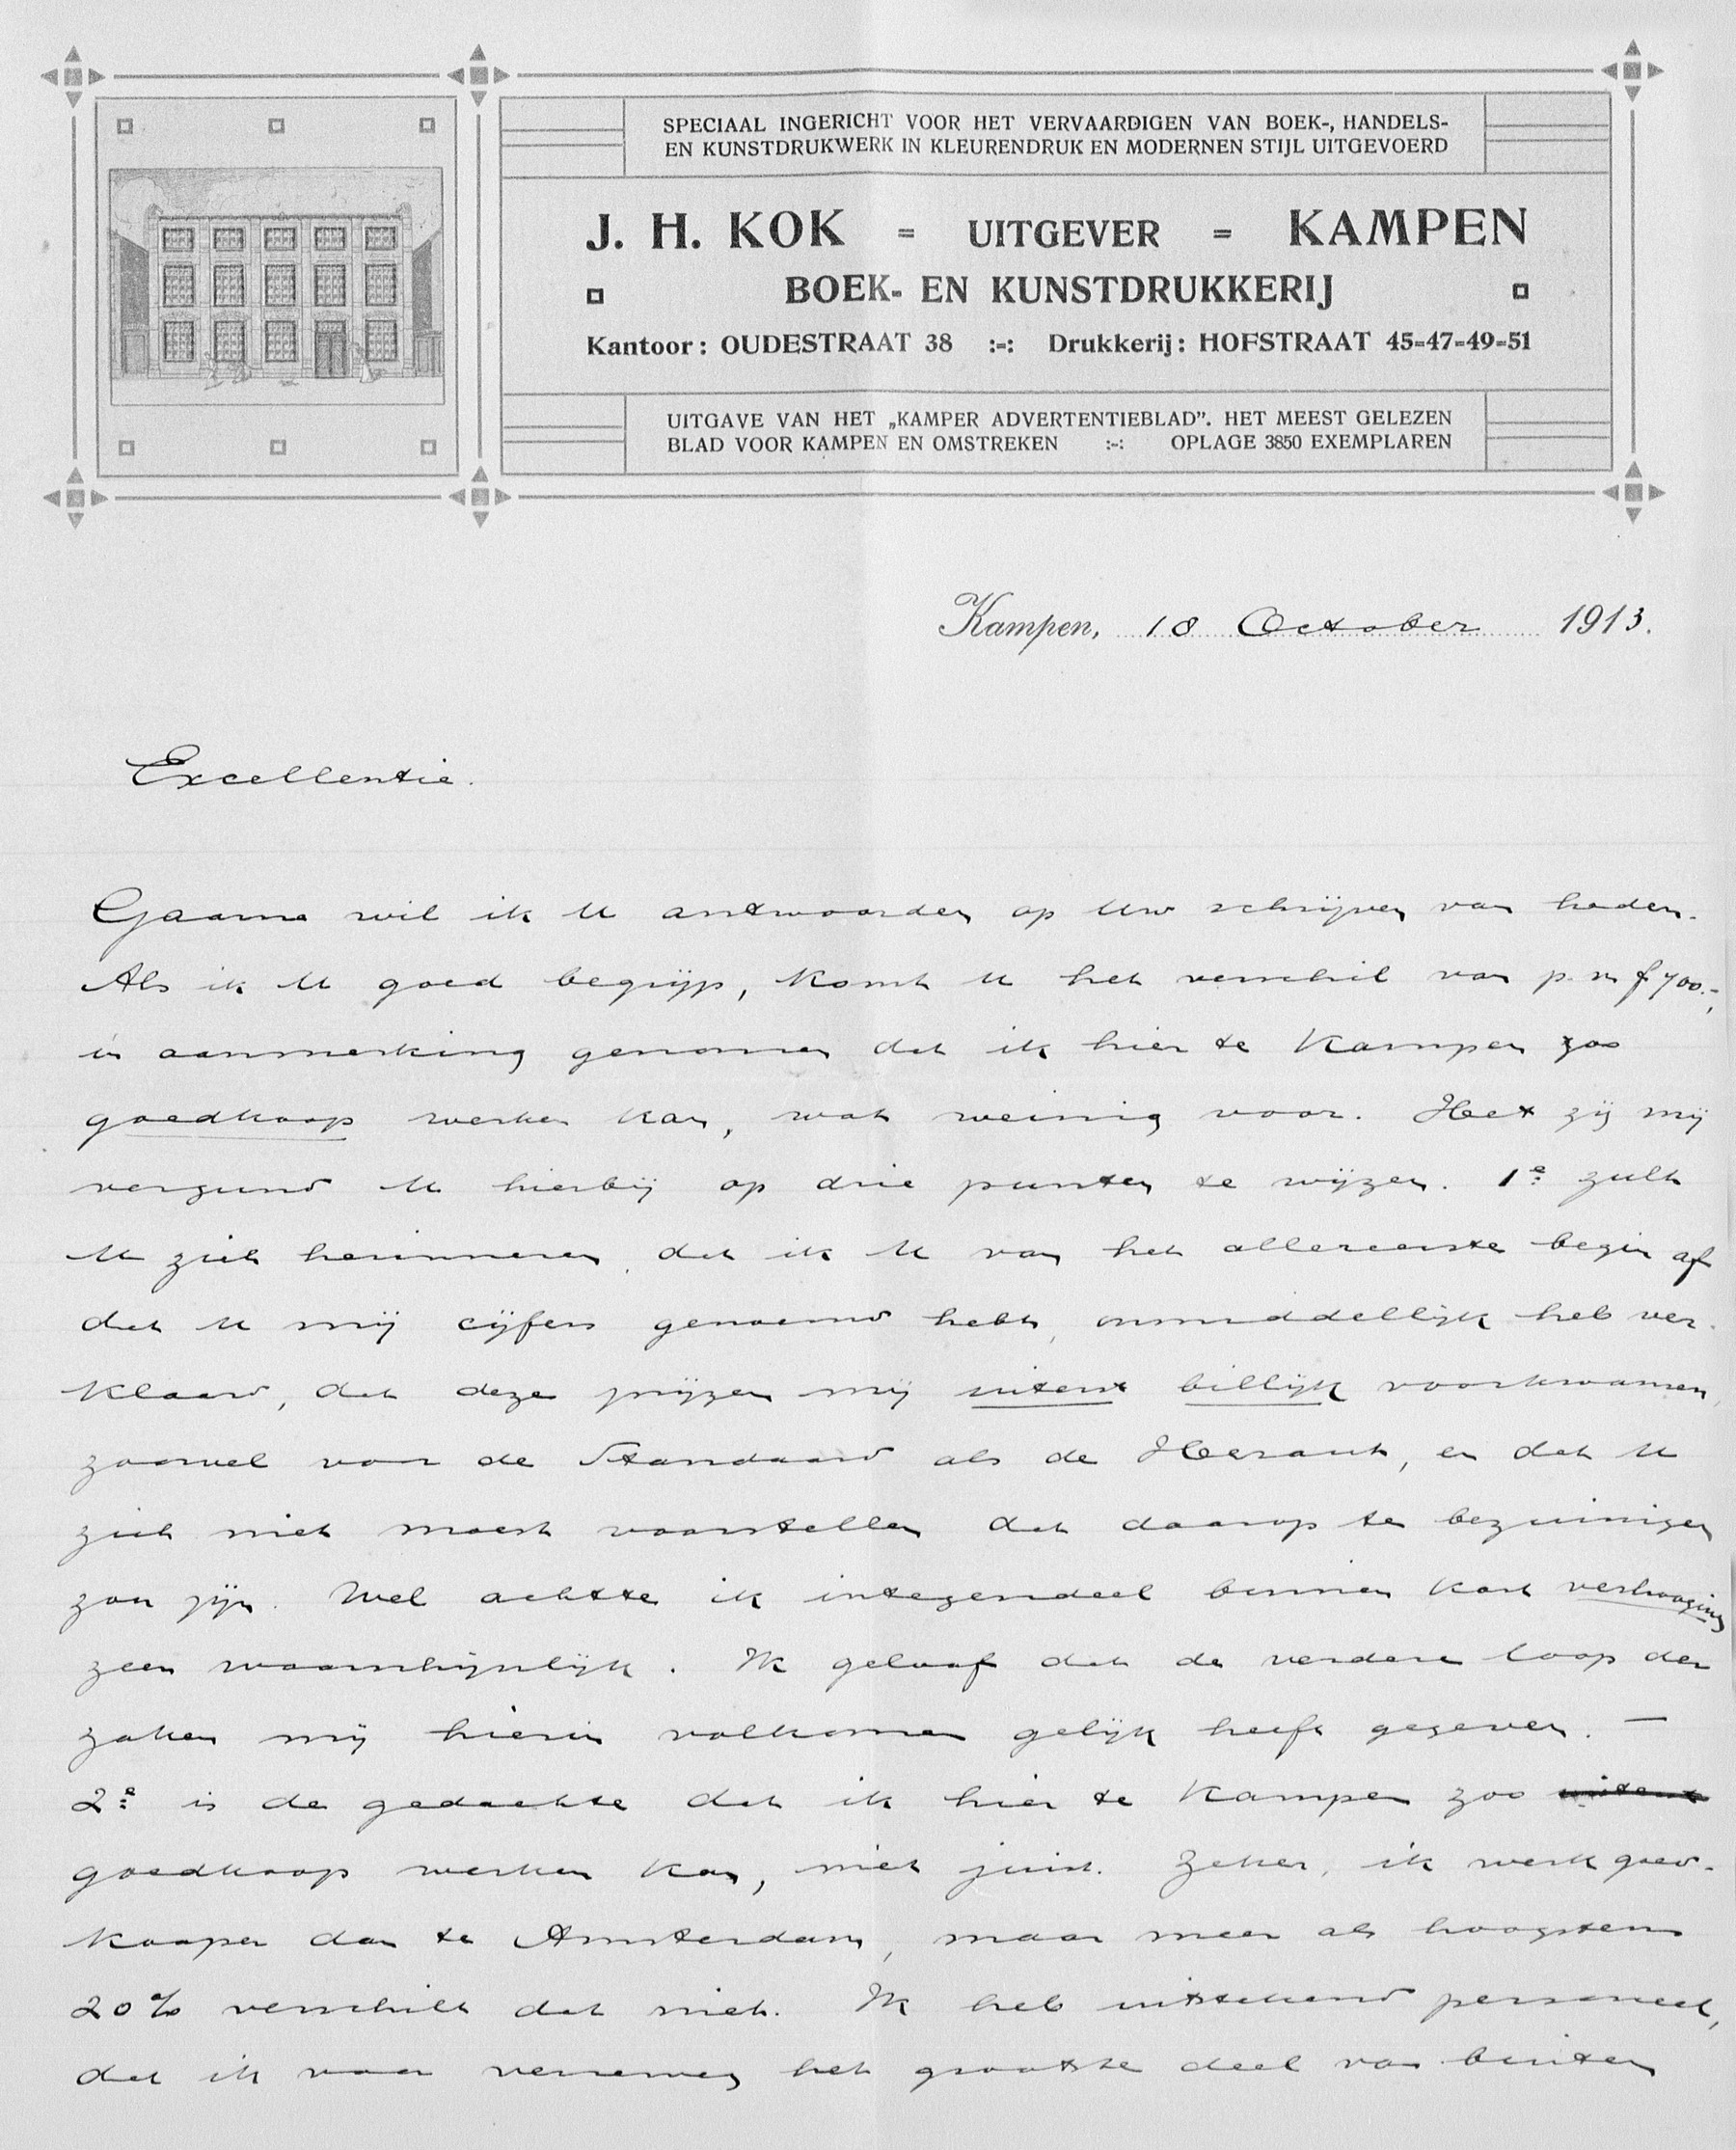 SPECIAAL INGERICHT VOOR HET VERVAARDIGEN VAN BOEK-, HANDELS-
EN KUNSTDRUKWERK IN KLEURENDRUK EN MODERNEN STIJL UITGEVOERD
J. H. KOK = UITGEVER = KAMPEN
BOEK- EN KUNSTDRUKKERIJ
Kantoor: OUDESTRAAT 38 :-: Drukkerij: HOFSTRAAT 45-47-49-51
UITGAVE VAN HET „KAMPER ADVERTENTIEBLAD”. HET MEEST GELEZEN
BLAD VOOR KAMPEN EN OMSTREKEN :-: OPLAGE 3850 EXEMPLAREN
Kampen, 18 October 1913.
Excellentie.
Gaarne wil ik U antwoorden op Uw schrijven van heden.
Als ik U goed begrijp, komt U het verschil van p. m f 700.-,
in aanmerking genomen dat ik hier te Kampen zoo
goedkoop werken kan, wat weinig voor. Het zij mij
vergund U hierbij op drie punten te wijzen. 1e zult
U zich herinneren, dat ik U van het allereerste begin af
dat U mij cijfers genoemd hebt, onmiddellijk heb ver-
klaard, dat deze prijzen mij uiterst billijk voorkwamen,
zoowel voor de Standaard als de Heraut, en dat U
zich niet moest voorstellen dat daarop te bezuinigen
zou zijn. Wel achtte ik integendeel binnen kort verhooging
zeer waarschijnlijk. Ik geloof dat de verdere loop der
zaken mij hierin volkomen gelijk heeft gegeven. —
2e is de gedachte dat ik hier te Kampen zoo uiterst
goedkoop werken kan, niet juist. Zeker, ik werk goed-
kooper dan te Amsterdam, maar meer als hoogstens
20% verschilt dat niet. Ik heb uitstekend personeel,
dat ik voor verreweg het grootste deel van buiten